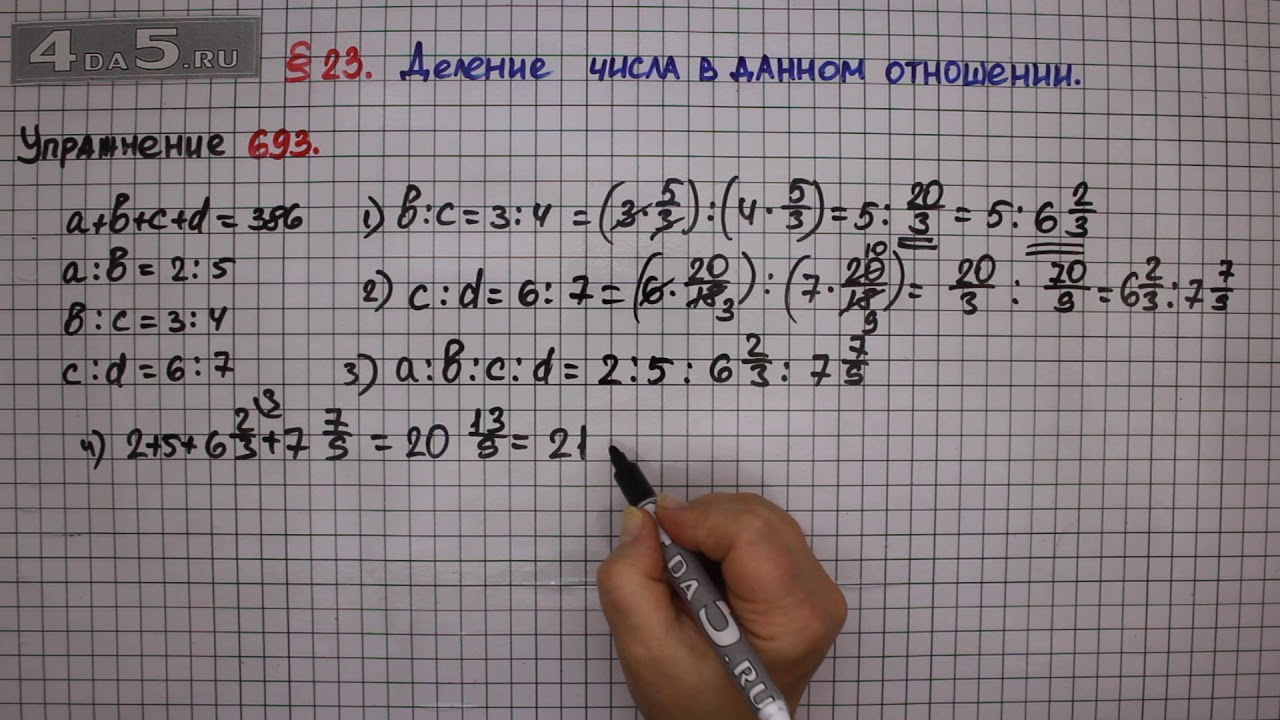 4DA5.RU
§ 23. Деление числа в данном отношении.
Упражнение 693.
a+b+c+d = 386
a:b = 2:5
b:c = 3:4
c:d = 6:7
1) b:c = 3:4 = (3·5/3):(4·5/3) = 5:20/3 = 5:6 2/3
2) c:d = 6:7 = (6·20/18 3):(7·20/18 10 9) = 20/3 : 70/9 = 6 2/3 : 7 7/9
3) a:b:c:d = 2:5:6 2/3:7 7/9
4) 2+5+6 2/3 \3 +7 7/9 = 20 13/9 = 21
DA5.RU